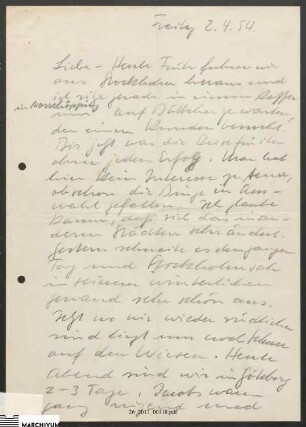 Freitag 2.4.54
Liebe - Heute Früh fuhren wir
aus Stockholm heraus und
ich sitze gerade in einem Kaffee
in Norrköping
um auf Böttcher zu warten
der einen Kunden besucht.
Bis jetzt war die Reise für ihn
ohne jeden Erfolg. Man hat
hier kein Interesse zu
obschon die Dinge in Aus-
wahl gefallen. Ich glaube
kaum, daß sich das in an-
deren Städten sehr ändert.
Gestern schneite es den ganzen
Tag und Stockholm sah
in seinem winterlichen
gewand sehr schön aus.
Jetzt wo wir wieder südlicher
sind liegt nur noch Schnee
auf den Wiesen. Heute
Abend sind wir in Göteborg
2-3 Tage. Jacobs waren
ganz reizend und
MARCHIVUM
26_2011_00118.pdf